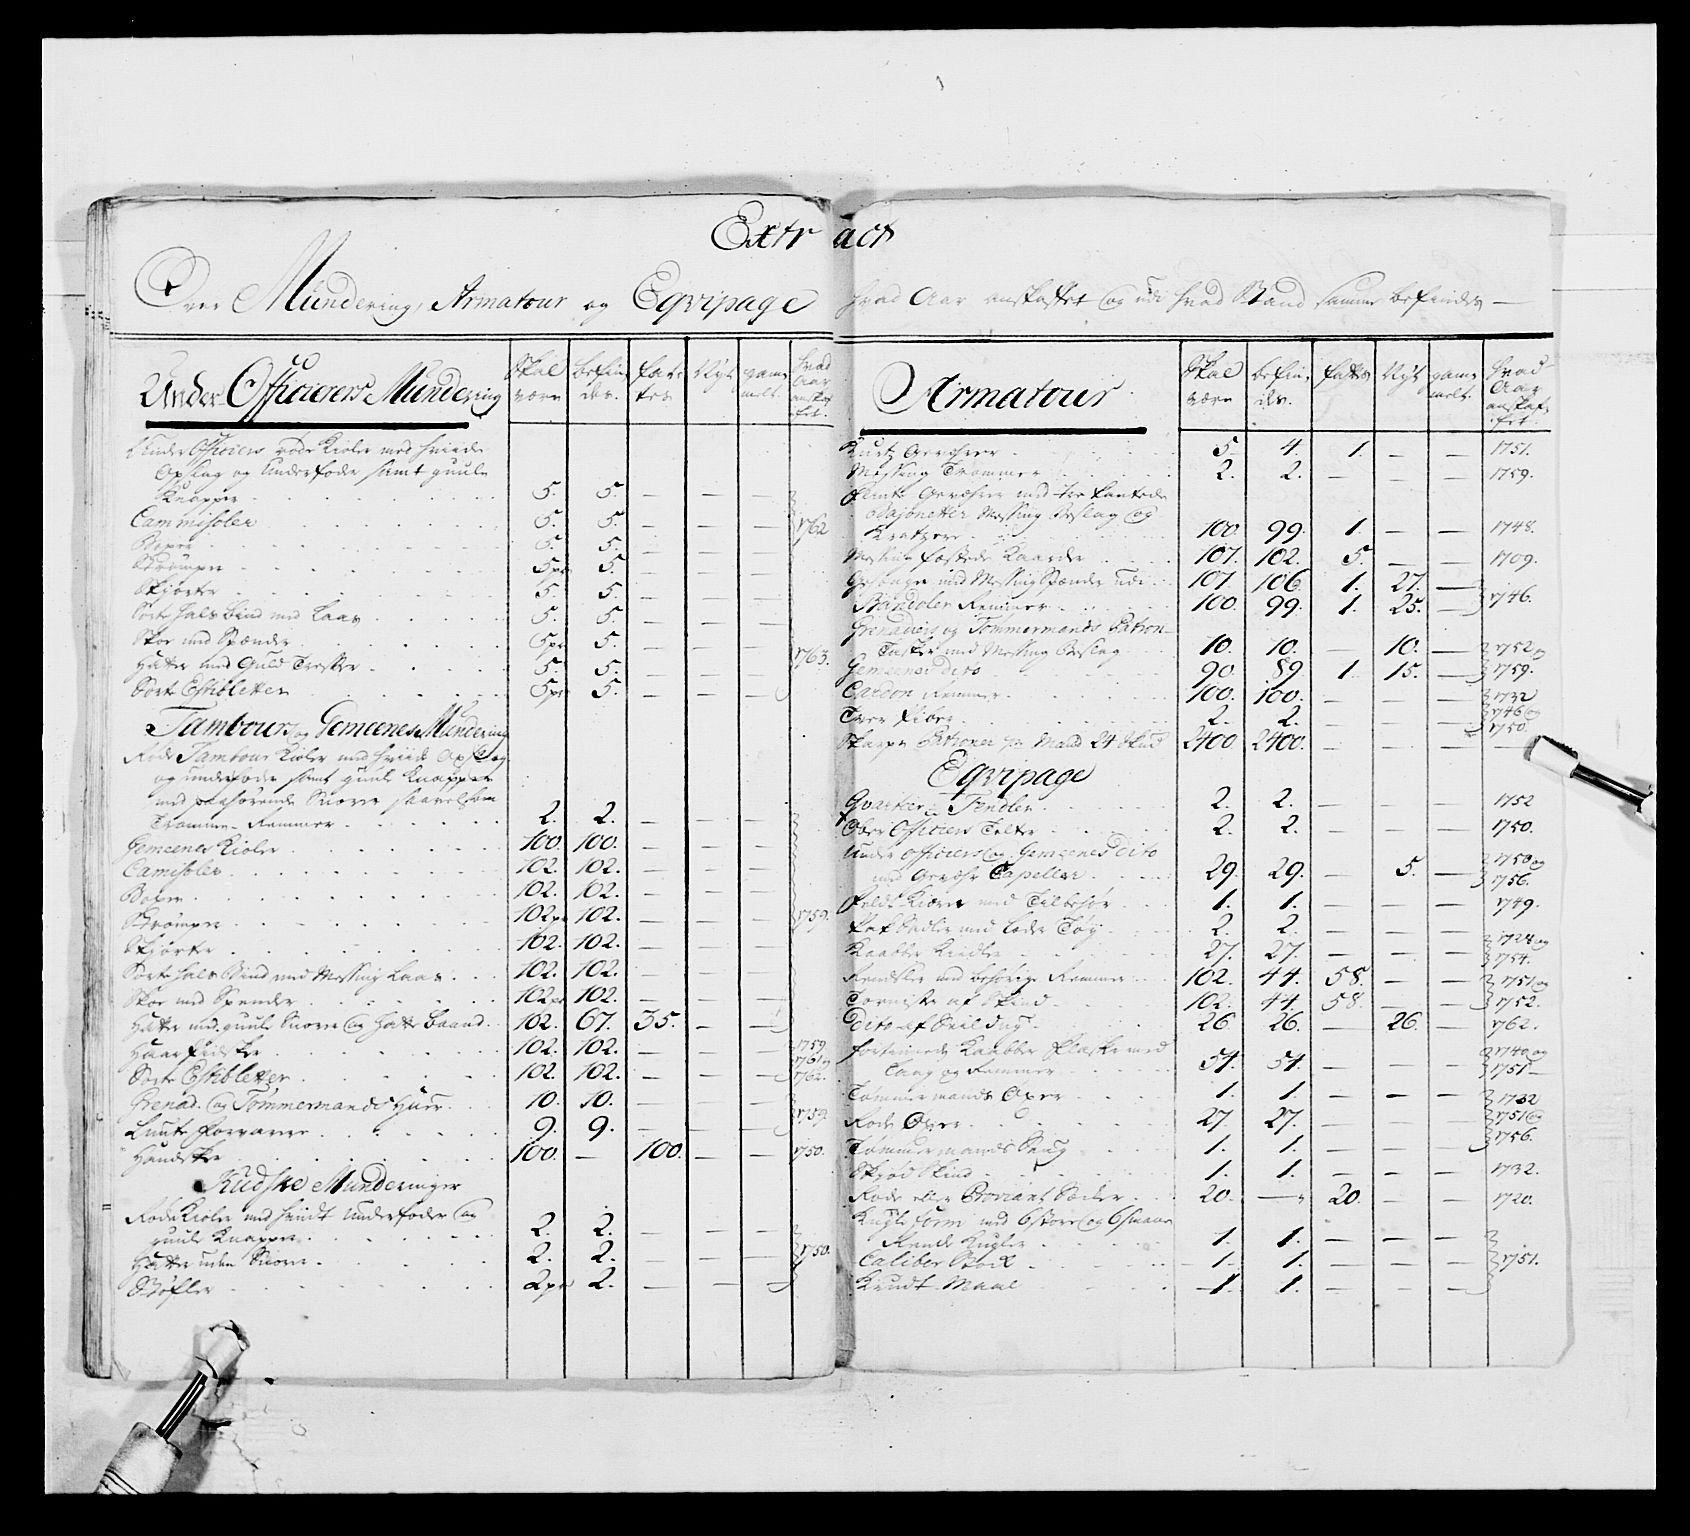 Extract
Over Mundering, Armatour og Eqvipage hvad Aar anskaffet og udi hvad Stand samme befindes —
Under Officierers Mundering | Skal være | befindes. | fattes | Nyt | gammelt. | hvad Aar anskaffet.
Under Officiers röde Kioler med hviide
Opslag og Underfoder samt guule
Knapper . . . 5. 5. — — —
Cammisoler . . . 5. 5. — — — 1762
Boxer . . . 5. 5. — — —
Strömper . . . 5 pr 5. — — —
Skjorter . . . 5. 5. — — —
Sorte Hals Bind med Laas . . . 5. 5. — — —
Skoe med Spænder . . . 5 pr 5. — — — 1763.
Hatte med Guld Tresser . . . 5. 5. — — —
Sort Estibletter . . . 5 pr 5. — — —
Tambours og Gemeenes Mundering
Röde Tambour Kioler med hviide Opslag
og Underfoder samt guul Knapper
med paahörende Snorer saavel som
Tromme-Remmer . . . 2. 2. — — —
Gemeenes Kioler . . . 100. 100. — — —
Camisoler . . . 102. 102. — — —
Boxer . . . 102. 102. — — —
Strömper . . . 102 pr 102. — — — 1759.
Skjorter . . . 102. 102. — — —
Sorte Hals Bind med Messing Laas . . . 102. 102. — — —
Skoe med Spender . . . 102 pr 102. — — —
Hatte med guule Snorer og Hatte Baand . . 102. 67. 35. — —
Haar Pidsker . . . 102. 102. — — — 1759 1761 og
Sorte Estibletter . . . 102. 102. — — — 1762.
Grenad. og Tömmermands Huer . . . 10. 10. — — — 1759
Lunte Forvarere . . . 9. 9. — — —
Handsker . . . 100. — 100. — — 1750.
Kudske Munderinger
Röde Kioler med hvidt Underfoder og
guule Knapper . . . 2. 2. — — —
Hatte uden Snorer . . . 2. 2. — — — 1750.
Stöfler . . . 2 pr 2. — — —
Armatour | Skal være | befindes. | fattes | Nyt | gammelt. | hvad Aar anskaffet.
Kurtz Gevæhrer . . . 5. 4. 1. — — 1751.
Messing Trommer . . . 2. 2. — — — 1759.
Flinte Gevæhrer med tre kantede
Bajonetter Messing Beslag og
Kratzere . . . 100. 99. 1. — — 1748.
Messing fæstede Kaarder . . . 107. 102. 5. — — 1709.
Gehænger med Messing Spænder udi . . 107. 106. 1. 27. — 1746.
Bandoler Remmer . . . 100. 99. 1. 25. —
Grenadeers og Tömmermands Patron
Tasker med Messing Beslag . . 10. 10. — 10. — 1752 og
Gemeenes dito . . . 90. 89. 1. 15. — 1759.
Carton Remmer . . . 100. 100. — — — 1732
Tver Piber . . . 2. 2. — — — 1746 og 1750.
Skarpe Patroner pr Mand 24 Skud 2400 2400. — — — —
Eqvipage
Qvarteer Fendler . . . 2. 2. — — — 1752
Ober Officiers Telter . . . 2. 2. — — — 1750.
Under Officiers og Gemeenes dito
med Gevæhr Capeller . . . 29. 29. — 5. — 1750 og 1756.
Feldt Kiærre med Tilbehör . . 1. 1. — — — 1749.
Pak Sadler med Læder Töy . . 2. 2. — — —
Kaabber Kiedler . . . 27. 27. — — — 1728 og 1754.
Rendsler med behörige Remmer . . 102. 44. 58. — — 1751 og
Tornister af Skind . . . 102. 44. 58. — — 1752.
Dito af Seildug . . . 26. 26. — 26. — 1762.
Fortinnede Kaabber Flasker med
Laag og Remmer . . . 51. 51. — — — 1740 og 1751
Tömmermands Oxer . . . 1. 1. — — — 1732
Röde Oxer . . . 27. 27. — — — 1751 og 1756.
Tömmermands Saug . . . 1. 1. — — —
Skiöd Skind . . . 1. 1. — — — 1732.
Röde eller Proviant Sæcker . . 20. — 20. — — 1720.
Kugle form med 6 store og 6 smaae
Rende Kugler . . . 1. 1. — — —
Caliber Stock . . . 1. 1. — — — 1751.
Krudt Maal . . . 1. 1. — — —